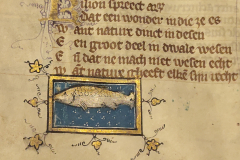 ilion spreect
dat een wonder in die ze es
Want nature dinct in desen
En groot deel in dwale wesen
En dat ne mach niet wesen echt
Wat nature gheeft elken sijn recht